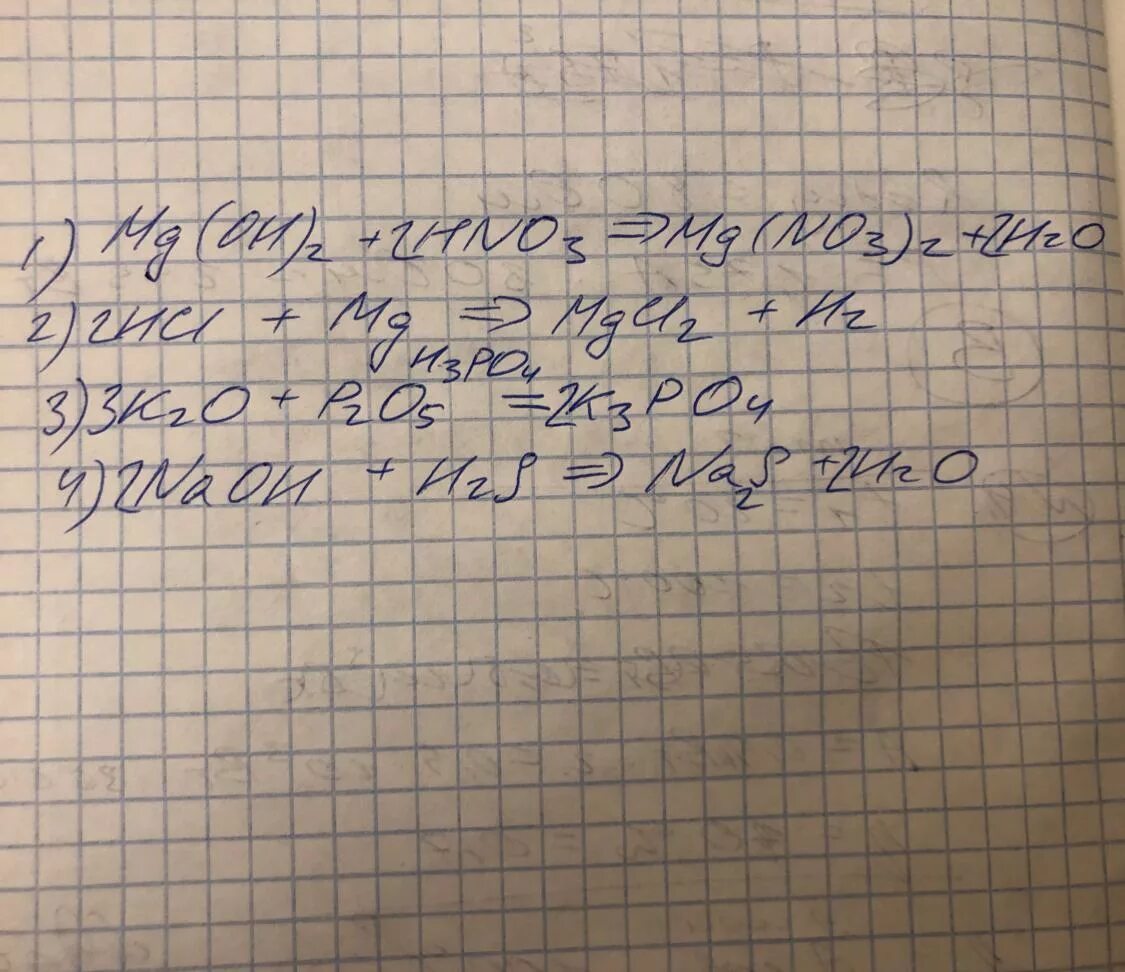 1) Mg(OH)2 + 2HNO3 => Mg(NO3)2 + 2H2O
2) 2HCl + Mg => MgCl2 + H2
H3PO4
3) 3K2O + P2O5 = 2K3PO4
4) 2NaOH + H2S => Na2S + 2H2O